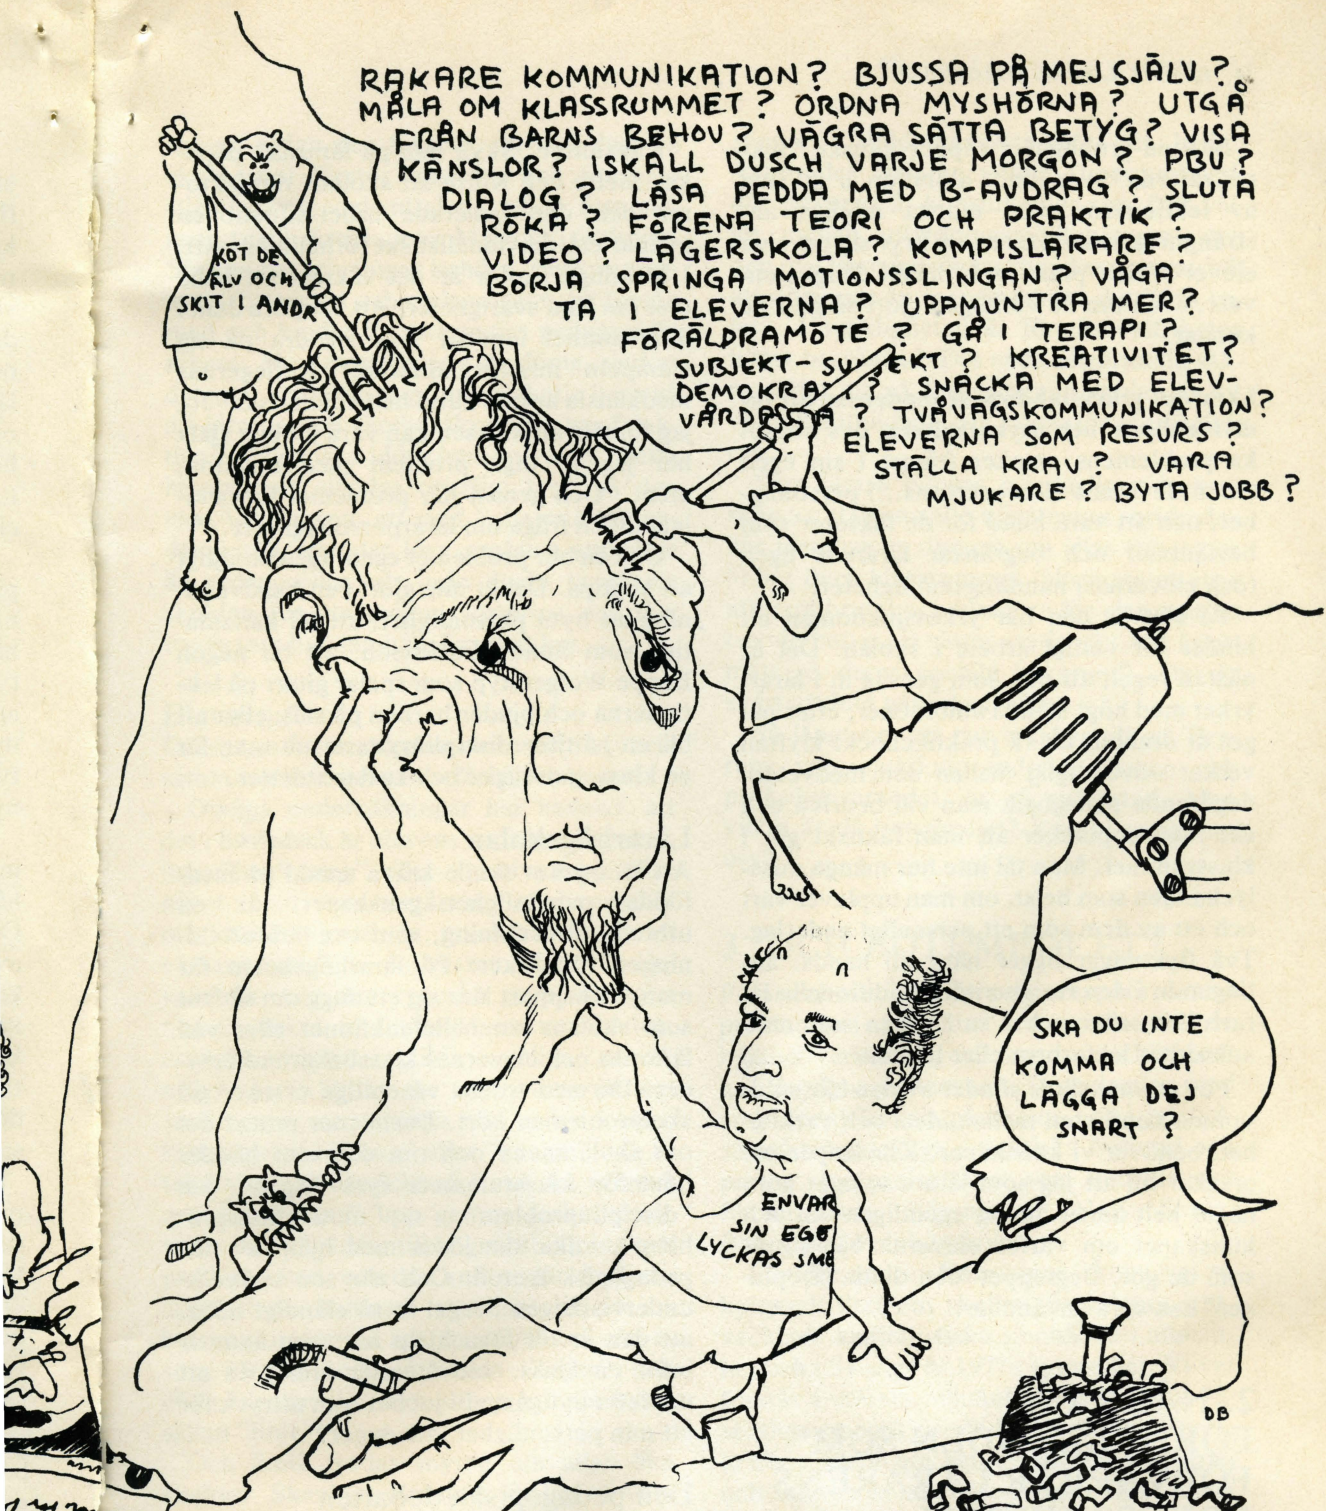 RAKARE KOMMUNIKATION? BJUSSA PÅ MEJ SJÄLV?
MÅLA OM KLASSRUMMET? ORDNA MYSHÖRNA? UTGÅ
FRÅN BARNS BEHOV? VÄGRA SÄTTA BETYG? VISA
KÄNSLOR? ISKALL DUSCH VARJE MORGON? PBU?
DIALOG? LÄSA PEDDA MED B-AVDRAG? SLUTA
RÖKA? FÖRENA TEORI OCH PRAKTIK?
VIDEO? LÄGERSKOLA? KOMPISLÄRARE?
BÖRJA SPRINGA MOTIONSSLINGAN? VÅGA
TA I ELEVERNA? UPPMUNTRA MER?
FÖRÄLDRAMÖTE? GÅ I TERAPI?
SUBJEKT-SU EKT? KREATIVITET?
DEMOKRA ? SNACKA MED ELEV-
VÅRDA A? TVÅVÄGSKOMMUNIKATION?
ELEVERNA SOM RESURS?
STÄLLA KRAV? VARA
MJUKARE? BYTA JOBB?
KÖT DE
ÄLV OCH
SKIT I ANDR
SKA DU INTE
KOMMA OCH
LÄGGA DEJ
SNART?
ENVAR
SIN EGE
LYCKAS SME
DB